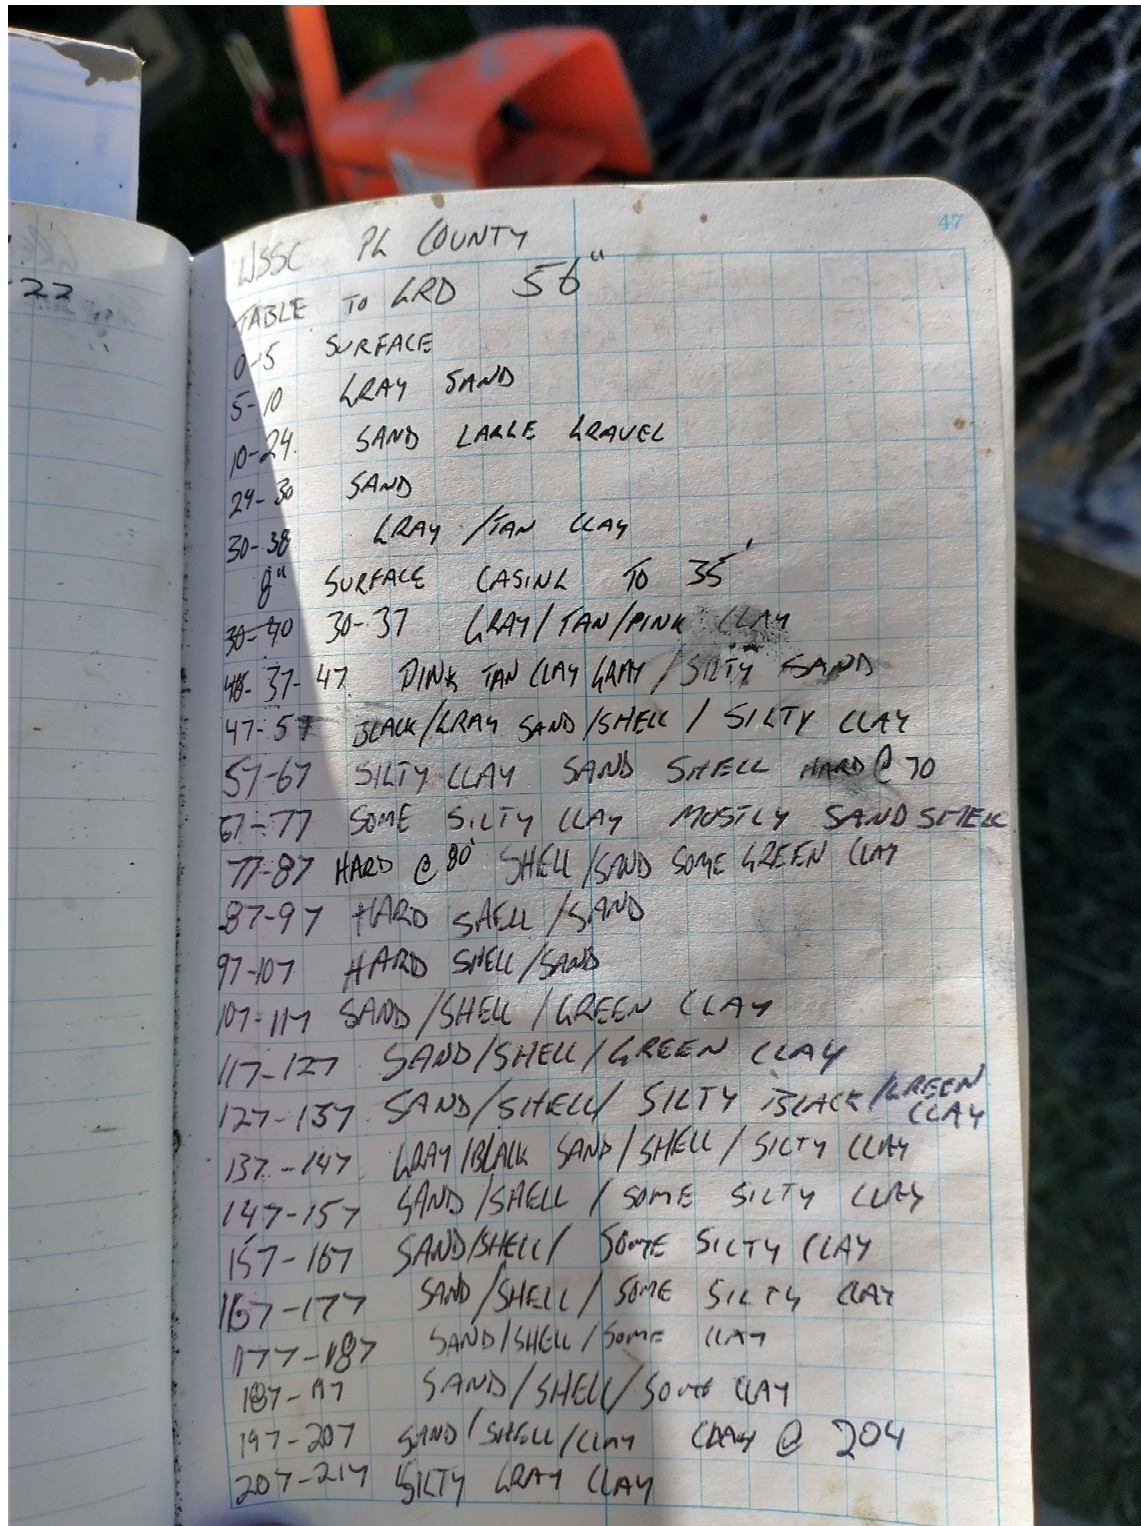 47
22
WSSC PG COUNTY
TABLE TO GRD 56"
0-5 SURFACE
5-10 GRAY SAND
10-24 SAND LARGE GRAVEL
24-30 SAND
30-38 GRAY/TAN CLAY
8" SURFACE CASING TO 35'
30-40 30-37 GRAY/TAN/PINK CLAY
37-47 PINK TAN CLAY GRAY/SILTY SAND
47-57 BLACK/GRAY SAND/SHELL/SILTY CLAY
57-67 SILTY CLAY SAND SHELL HARD @ 70
67-77 SOME SILTY CLAY MOSTLY SAND SHELL
77-87 HARD @ 80' SHELL/SAND SOME GREEN CLAY
87-97 HARD SHELL/SAND
97-107 HARD SHELL/SAND
107-117 SAND/SHELL/GREEN CLAY
117-127 SAND/SHELL/GREEN CLAY
127-137 SAND/SHELL/SILTY BLACK/GREEN CLAY
137-147 GRAY/BLACK SAND/SHELL/SILTY CLAY
147-157 SAND/SHELL/SOME SILTY CLAY
157-167 SAND/SHELL/SOME SILTY CLAY
167-177 SAND/SHELL/SOME SILTY CLAY
177-187 SAND/SHELL/SOME CLAY
187-197 SAND/SHELL/SOME CLAY
197-207 SAND/SHELL/CLAY CLAY @ 204
207-217 SILTY GRAY CLAY